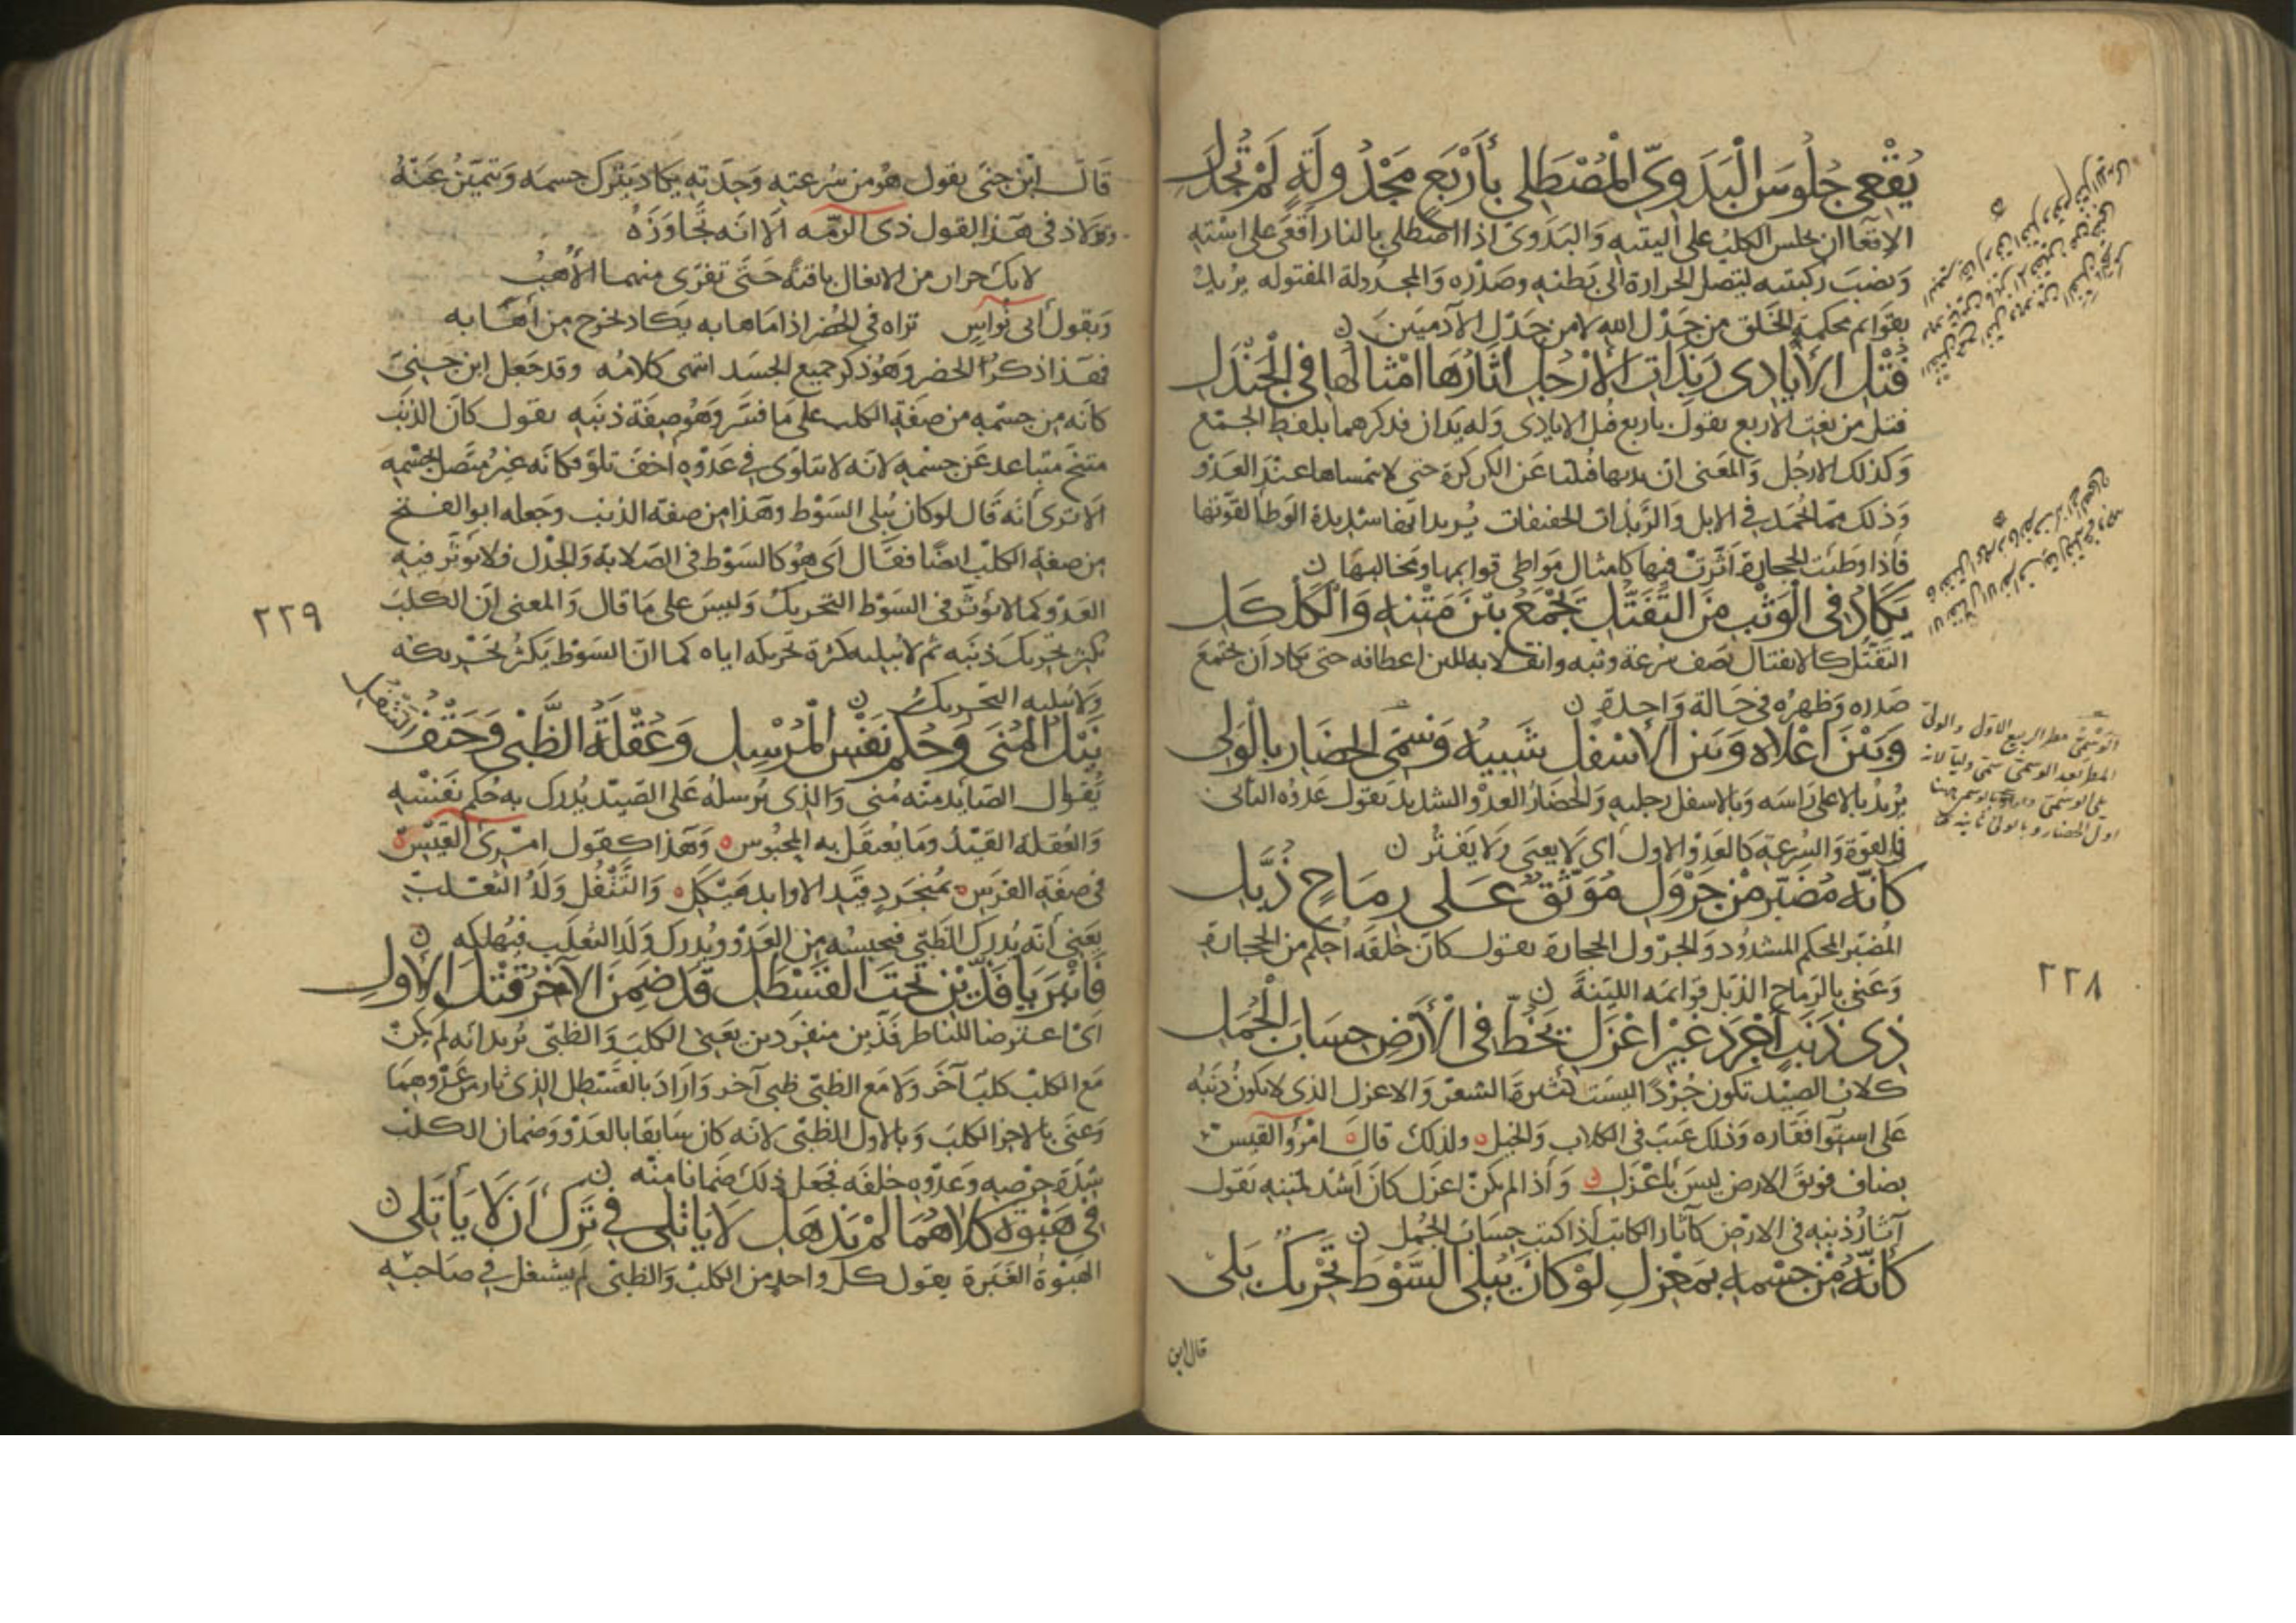 يُقْعِي جُلُوسَ الْبَدَوِيِّ الْمُصْطَلِي بِأَرْبَعٍ مَجْدُولَةٍ لَمْ تُجْدَلِ
الاقعاان يجلس الكلب على اليتيه والبدوى اذا اصطلى بالنار اقعى على استه
ونصب ركبتيه ليتصل الحرارة الى بطنه وصدره والمجدولة المفتوله يريد
بقوائم محكمة الخلق من جدل الله لا من جدل الآدميين
فُتْلِ الأَيَادِي رَبِذَاتِ الأَرْجُلِ آثَارُهَا أَمْثَالُهَا فِي الْجَنْدَلِ
فتل من نعت الاربع يقول باربع فتل الايادى وله يدان فذكرهما بلفظ الجمع
وكذلك الارجل والمعنى ان يديها فتلتا عن الكركرة حتى لا تمساها عند العدو
وذلك مما يحمد في الابل والربذات الخفيفات يريد انها شديدة الوطأ لقوتها
فاذا وطئت الحجارة اثرت فيها كامثال مواطى قوايمها ومخالبها
يَكَادُ فِي الْوَثْبِ مِنَ التَّفَتُّلِ يَجْمَعُ بَيْنَ مَتْنِهِ وَالْكَلْكَلِ
التفتل كالانفتال يصف سرعة وثبه وانقلابه للين اعطافه حتى يكاد ان يجتمع
صدره وظهره في حالة واحدة
وَبَيْنَ أَعْلَاهُ وَبَيْنَ الأَسْفَلِ شَبِيهُ وَسْمِيِّ الْحِضَارِ بِالْوَلِي
يريد بالاعلى راسه وبالاسفل رجليه والحضار العدو الشديد يقول عدوه الثانى
في القوة والسرعة كالعدو الاول اى لا يعيى ولا يفتر
كَأَنَّهُ مُضَبَّرٌ مِنْ جَرْوَلِ مُوَثَّقٌ عَلَى رِمَاحٍ ذُبَّلِ
المضبر المحكم المشدود والجرول الحجارة يقول كان خلقه احكم من الحجارة
وعنى بالرماح الذبل قوائمه اللينة
ذِي ذَنَبٍ أَجْرَدَ غَيْرِ أَعْزَلِ يَخُطُّ فِي الأَرْضِ حِسَابَ الْجُمَّلِ
كلاب الصيد تكون جردا ليست كثيرة الشعر والاعزل الذى لا يكون ذنبه
على استوا فقاره وذلك عيب في الكلاب والخيل ولذلك قال امرؤ القيس
بضاف فويق الارض ليس باعزل واذا لم يكن اعزل كان اشد لمتنه يقول
آثار ذنبه في الارض كآثار الكاتب اذا كتب حساب الجمل
كَأَنَّهُ مِنْ جِسْمِهِ بِمَعْزِلِ لَوْ كَانَ يُبْلِي السَّوْطَ تَحْرِيكٌ بَلِي
قال ابن
الوسمى مطر الربيع الاول والولى
المطر بعد الوسمى سمى وليا لانه
يلى الوسمى واراد بالوسمى ههنا
اول الحضار وبالولى ثانيه
٢٢٨
قال ابن جنى يقول هو من سرعته وحدته يكاد يترك جسمه ويتميز عنه
ولاذ في هذا القول ذى الرمه الا انه تجاوزه
حَتَّى تفرى منهما الأهب
وبقول ابى نواس تراه في الحضر اذا هاها به يكاد يخرج من اهابه
فهذا ذكر الحضر وهو ذكر جميع الجسد انتهى كلامه وقد جعل ابن جنى
كانه من جسمه من صفة الكلب على ما فسر وهو صفة ذنبه يقول كان الذنب
متنح متباعد عن جسمه لانه لا يتلوى في عدوه اخف تلو فكانه غير متصل بجسمه
الا ترى انه قال لو كان يبلى السوط وهذا من صفة الذنب وجعله ابو الفتح
من صفة الكلب ايضا فقال اى هو كالسوط في الصلابة والجدل فلا يؤثر فيه
العدو كما لا يؤثر في السوط التحريك وليس على ما قال والمعنى ان الكلب
يكثر تحريك ذنبه ثم لا يبليه كثرة تحريكه اياه كما ان السوط يكثر تحريكه
ولا يبليه التحريك
نَيْلُ الْمُنَى وَحُكْمُ نَفْسِ الْمُرْسِلِ وَعُقْلَةُ الظَّبْيِ وَحَتْفُ التَّتْفُلِ
يقول الصايد منه منى والذى يرسله على الصيد يدرك به حكم نفسه
والعقلة القيد وما يعتقل به المحبوس وهذا كقول امرئ القيس
في صفة الفرس بمنجرد قيد الاوابد هيكل والتتفل ولد الثعلب
يعنى انه يدرك الظبى فيحبسه من العدو ويدرك ولد الثعلب فيهلكه
فَانْبَرَيَا فَذَّيْنِ تَحْتَ الْقَسْطَلِ قَدْ ضَمِنَ الآخِرُ قَتْلَ الأَوَّلِ
اى اعترضا للناظر فذين منفردين يعنى الكلب والظبى يريد انه لم يكن
مع الكلب كلب آخر ولا مع الظبى ظبى آخر واراد بالقسطل الذى ثار من عدوهما
وعنى بالاخر الكلب وبالاول الظبى لانه كان سابقا بالعدو وضمان الكلب
شدة حرصه وعدوه خلفه فجعل ذلك ضمانا منه
فِي هَبْوَةٍ كِلَاهُمَا لَمْ يَذْهَلِ لَا يَأْتَلِي فِي تَرْكِ أَنْ لَا يَأْتَلِي
الهبوة الغبرة يقول كل واحد من الكلب والظبى لم يشتغل في صاحبه
٢٢٩